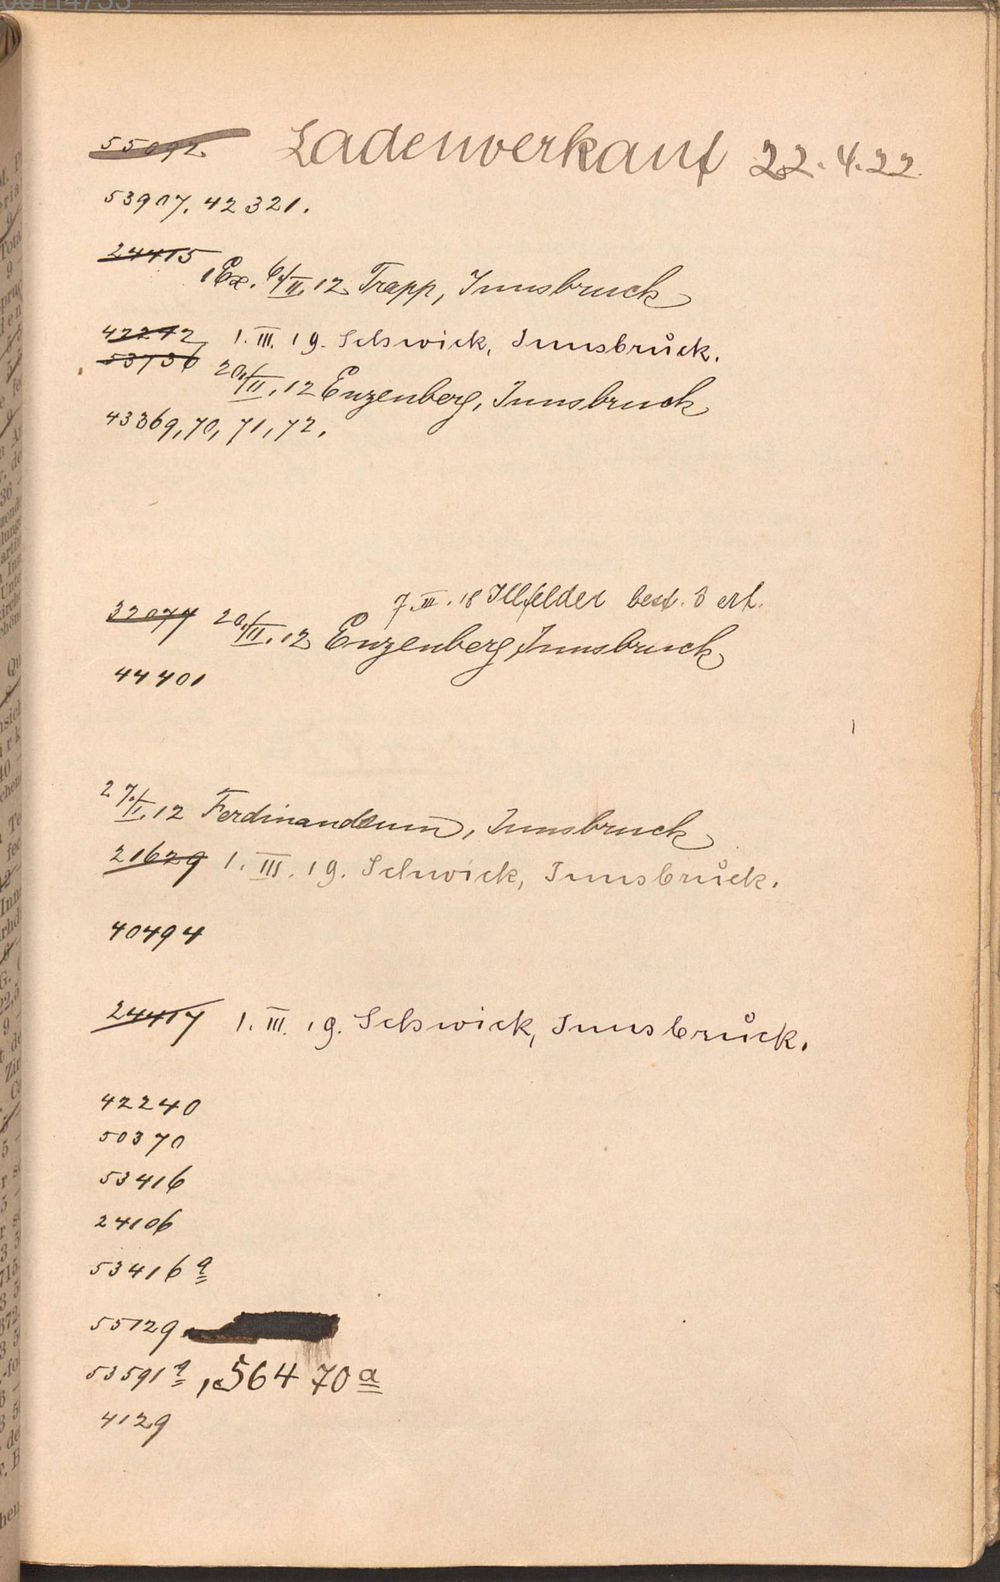 55092 Ladenverkauf 22.4.22.
53907. 42321.
24415
1 Ex. 6/II.12 Trapp, Innsbruck
42242 1. III. 19. Schwick, Innsbruck.
53736 20/II.12 Enzenberg, Innsbruck
43369, 70, 71, 72.
7. III. 18 Illfelder best. 3 ert.
32077 20/II.12 Enzenberg, Innsbruck
44401
27./I.12 Ferdinandeum, Innsbruck
21629 1. III. 19. Schwick, Innsbruck.
40494
24417 1. III. 19. Schwick, Innsbruck.
42240
50370
53416
24106
53416a
55129
53591a, 56470a
4129